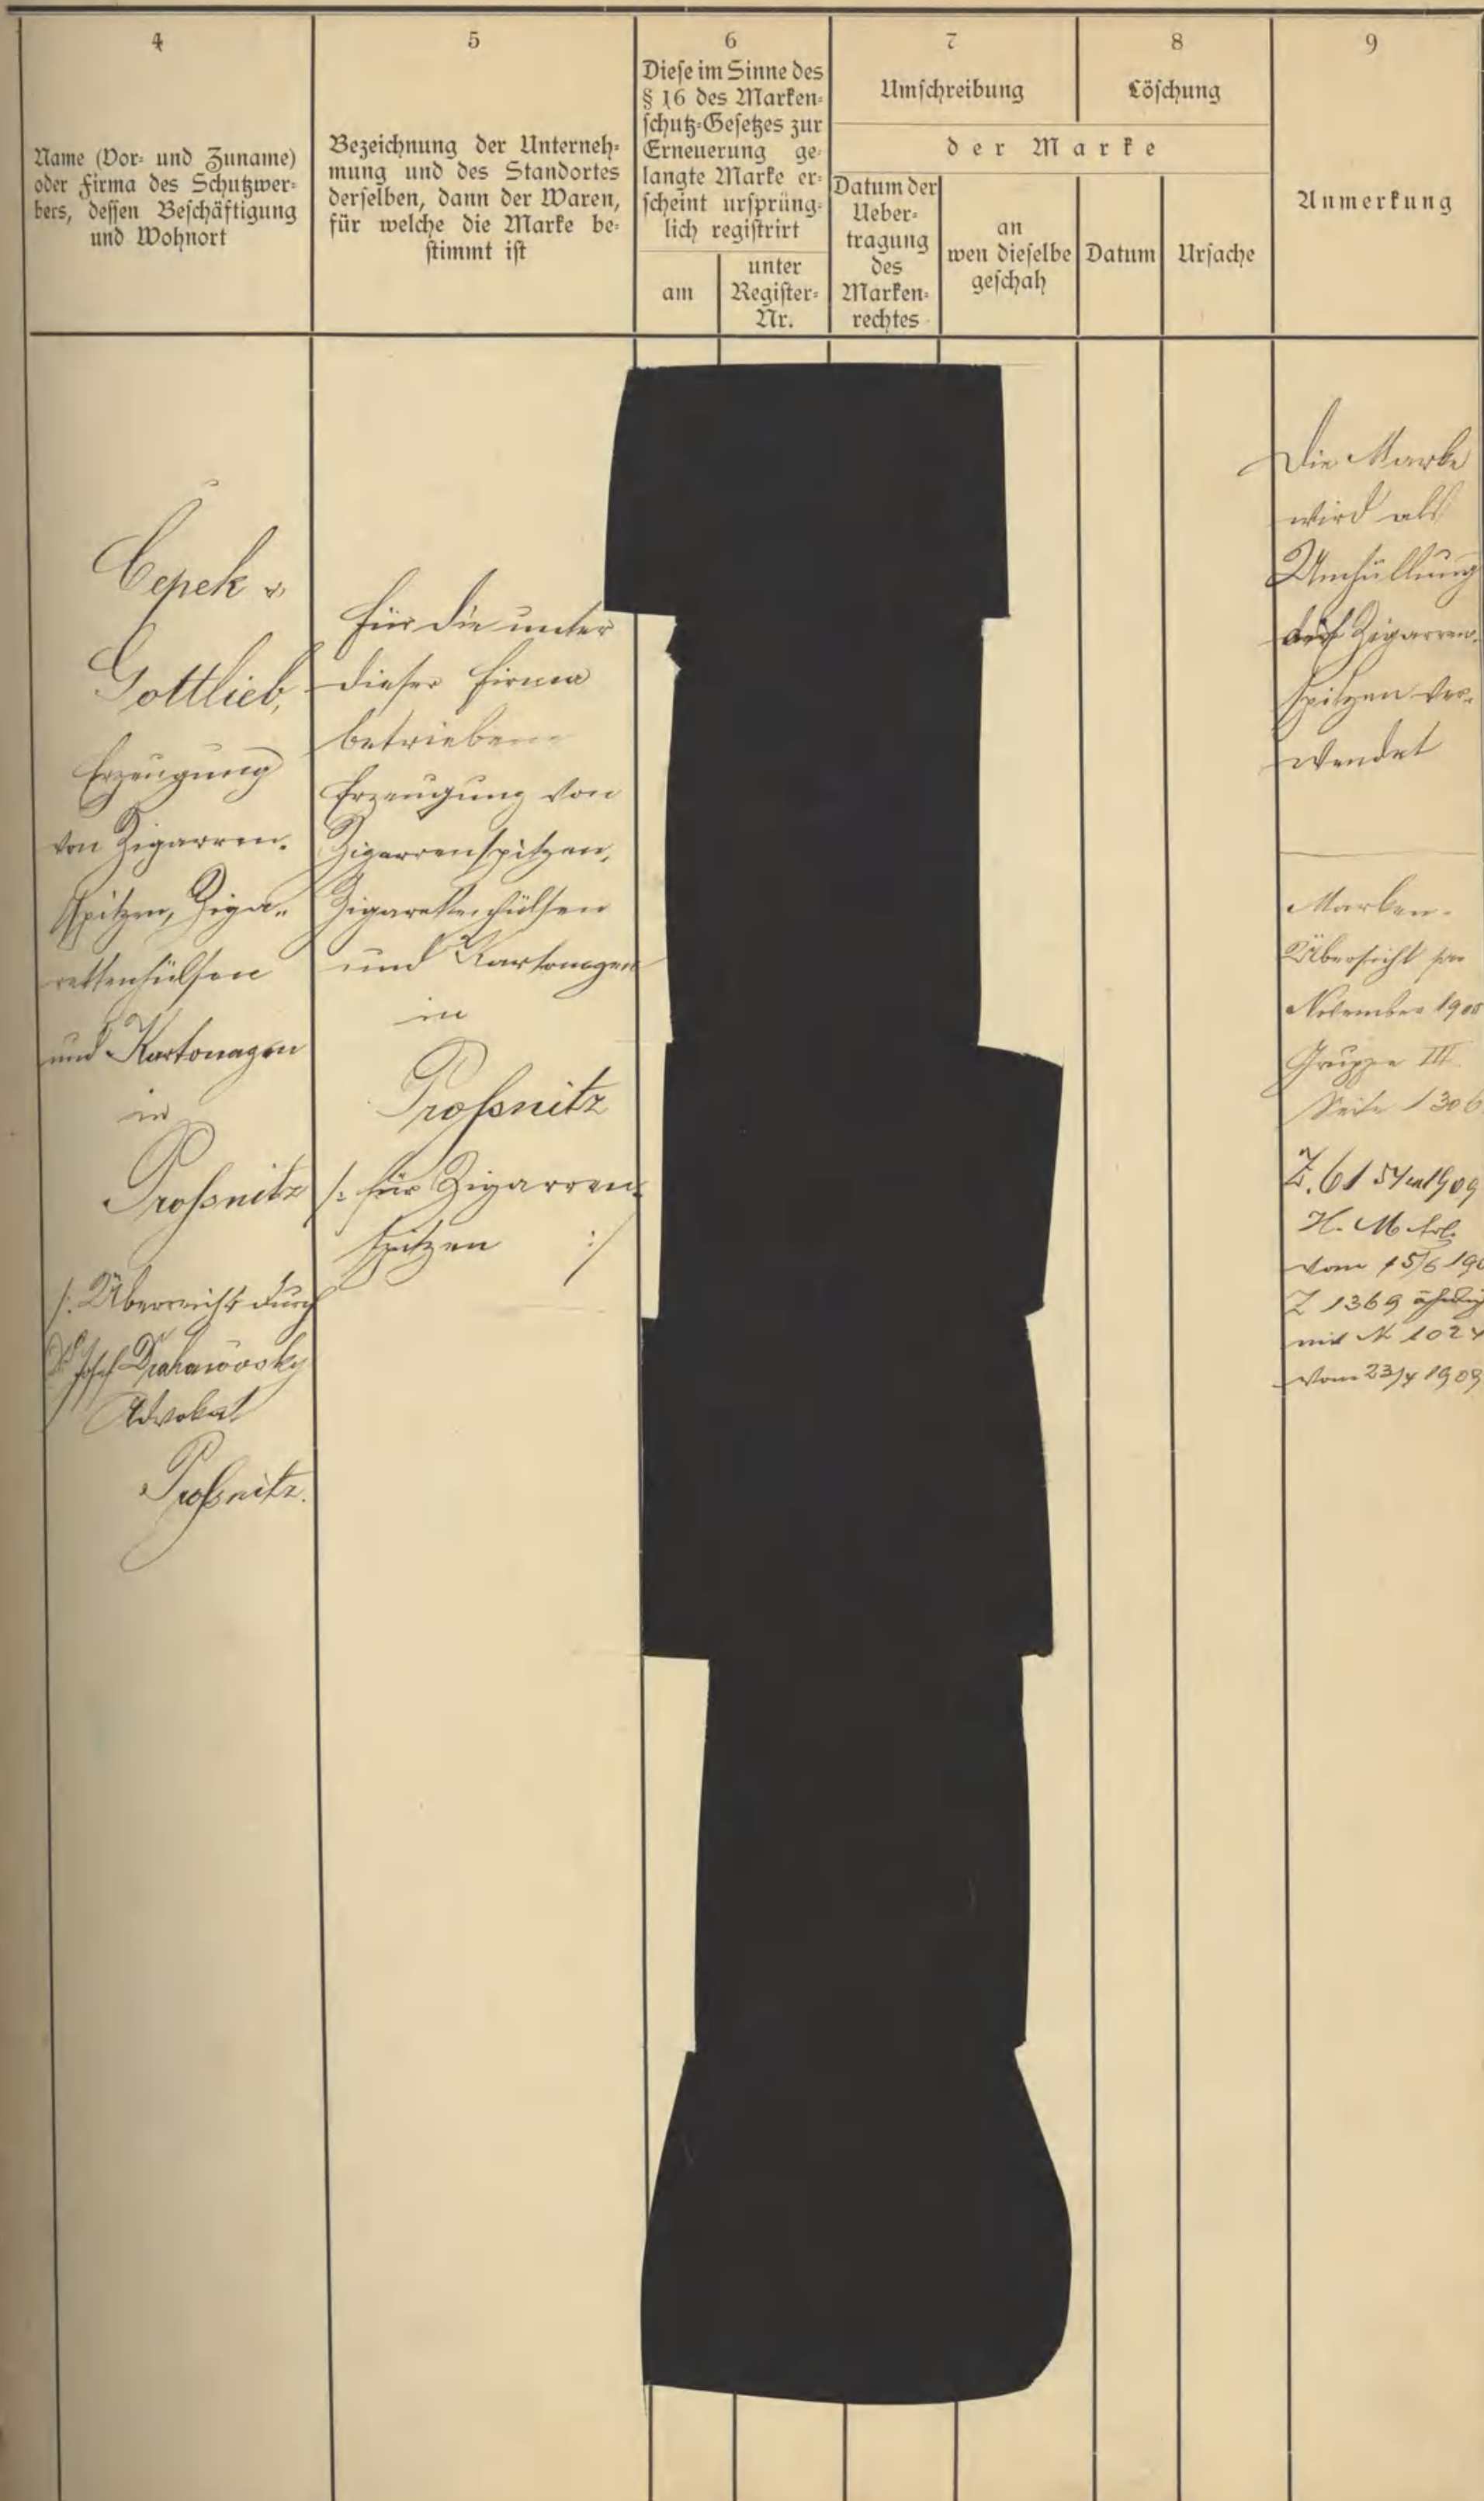 4
Name (Vor- und Zuname)
oder Firma des Schutzwer-
bers, dessen Beschäftigung
und Wohnort
5
Bezeichnung der Unterneh-
mung und des Standortes
derselben, dann der Waren,
für welche die Marke be-
stimmt ist
6
Diese im Sinne des
§ 16 des Marken-
schutz-Gesetzes zur
Erneuerung ge-
langte Marke er-
scheint ursprüng-
lich registrirt
am
unter
Register-
Nr.
7
Umschreibung
8
Löschung
der Marke
Datum der
Ueber-
tragung
des
Marken-
rechtes
an
wen dieselbe
geschah
Datum
Ursache
9
Anmerkung
Čepek &
Gottlieb,
Erzeugung
von Zigarren-
spitzen, Ziga-
rettenhülsen
und Kartonagen
in
Prossnitz
/: Überreicht durch
Dr Josef
Advokat
Prossnitz.
für die unter
dieser Firma
betriebene
Erzeugung von
Zigarrenspitzen,
Zigarettenhülsen
und Kartonagen
in
Prossnitz
/: für Zigarren-
spitzen :/
Die Marke
wird als
Umhüllung
Zigarren-
spitzen ver-
wendet
Marken-
Übersicht
November
Gruppe III
Seite 1306
Z. 61
H. M. Erl.
vom 15/6 190
Z 1369 ähnlich
mit № 102
vom 1909